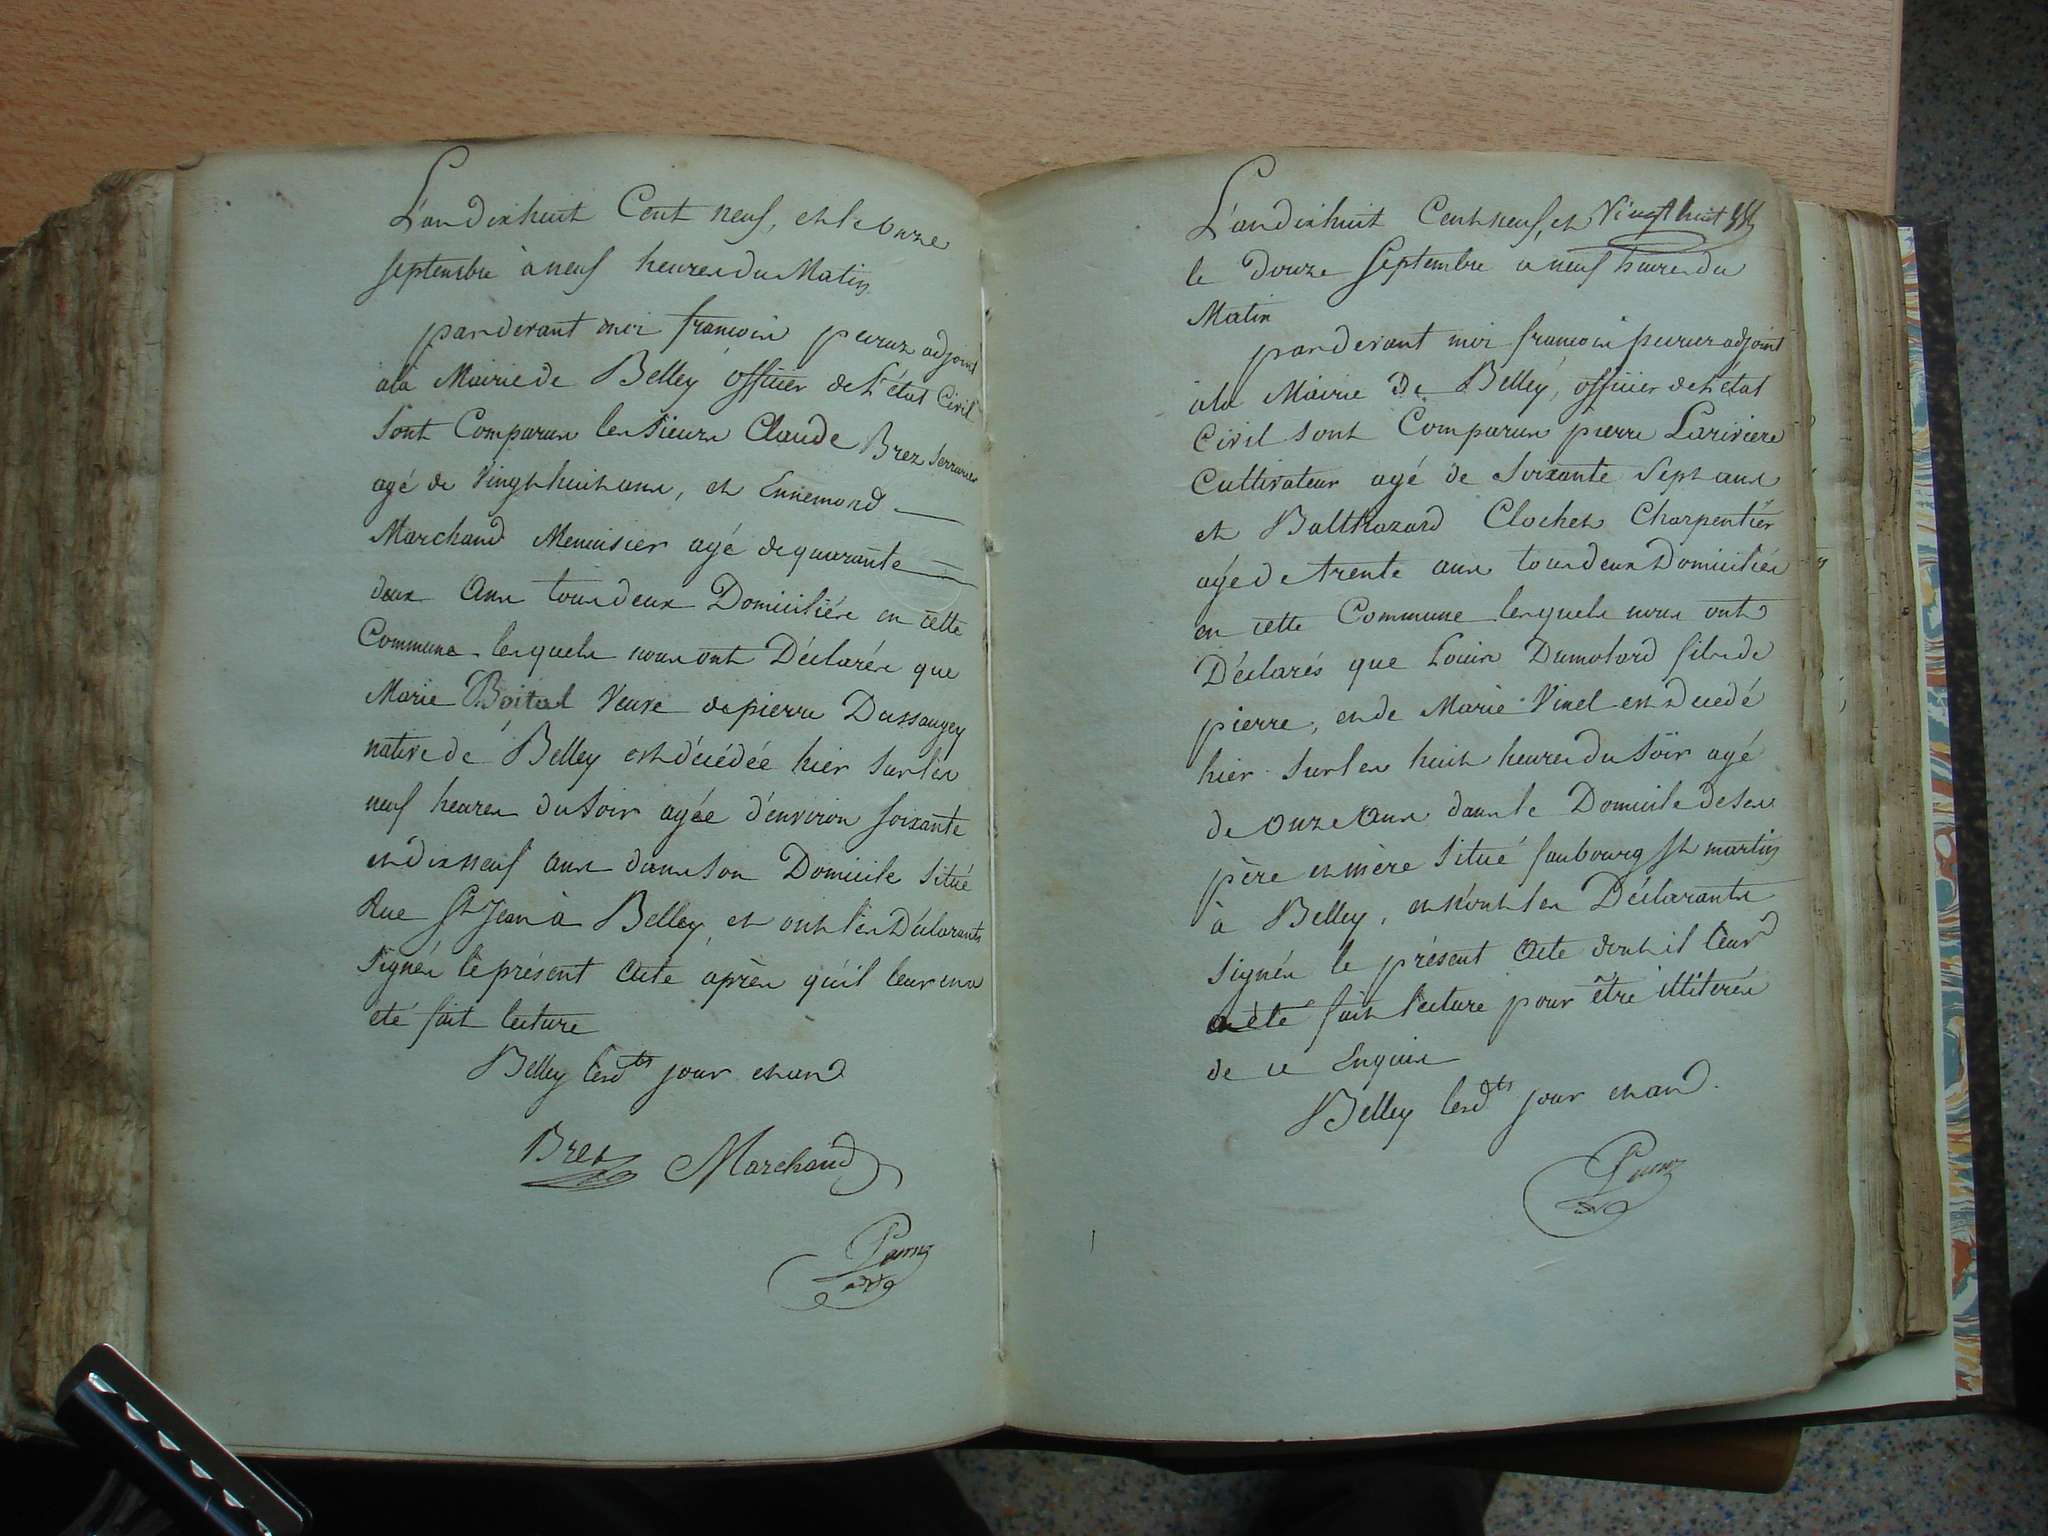 L'an dix huit Cent neuf, et le onze
septembre à neuf heures du Matin
pardevant moi françois peruz adjoint
ala Mairie de Belley officier de l'état Civil
sont Comparus les sieurs Claude Brez serrurier
agé de Vingt huit ans, et Ennemond
Marchand Menuisier agé de quarante
deux ans tous deux Domiciliés en cette
Commune lesquels nous ont Déclarés que
Marie Boital Veuve de pierre Dussaugey
native de Belley est décédée hier sur les
neuf heures du soir agée d'environ soixante
et dix neuf ans dans son Domicile situé
Rue St Jean à Belley, et ont les Déclarants
signés le présent acte après qu'il leur en a
eté fait lecture
Belley lesdts jour et an
Brez Marchand
adjt
L'an dix huit Cent neuf, et Vingt huit
le douze septembre a neuf heures du
Matin
pardevant moi françois peruz adjoint
ala Mairie De Belley, officier de l'état
Civil sont Comparus pierre Lariviere
Cultivateur agé de soixante sept ans
et Balthazard Clochet Charpentier
agé de trente ans tous deux Domiciliés
en cette Commune lesquels nous ont
Déclarés que Louis Dumolard fils de
pierre, et de Marie Vinel est decedé
hier sur les huit heures du soir agé
de onze ans dans le Domicile de ses
père et mère situé faubourg St martin
à Belley, et n'ont les Déclarants
signés le présent acte dont il leur
a èté fait lecture pour être illiterés
de ce Enquis
Belley lesdts jour et an.